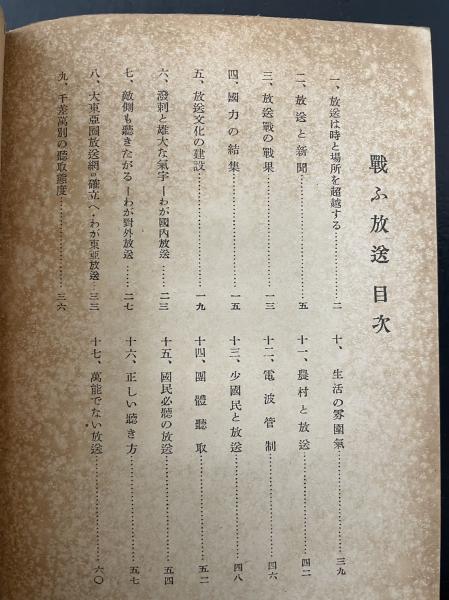 戰ふ放送 目次
一、放送は時と場所を超越する………………二
二、放送と新聞………………五
三、放送戰の戰果………………一三
四、國力の結集………………一五
五、放送文化の建設………………一九
六、潑剌と雄大な氣宇―わが國內放送………………二三
七、敵側も聽きたがる―わが對外放送………………二七
八、大東亞圈放送網の確立へ・わが東亞放送………………三三
九、千差萬別の聽取態度………………三六
十、生活の雰圍氣………………三九
十一、農村と放送………………四二
十二、電波管制………………四六
十三、少國民と放送………………四八
十四、團體聽取………………五二
十五、國民必聽の放送………………五四
十六、正しい聽き方………………五七
十七、萬能でない放送………………六〇